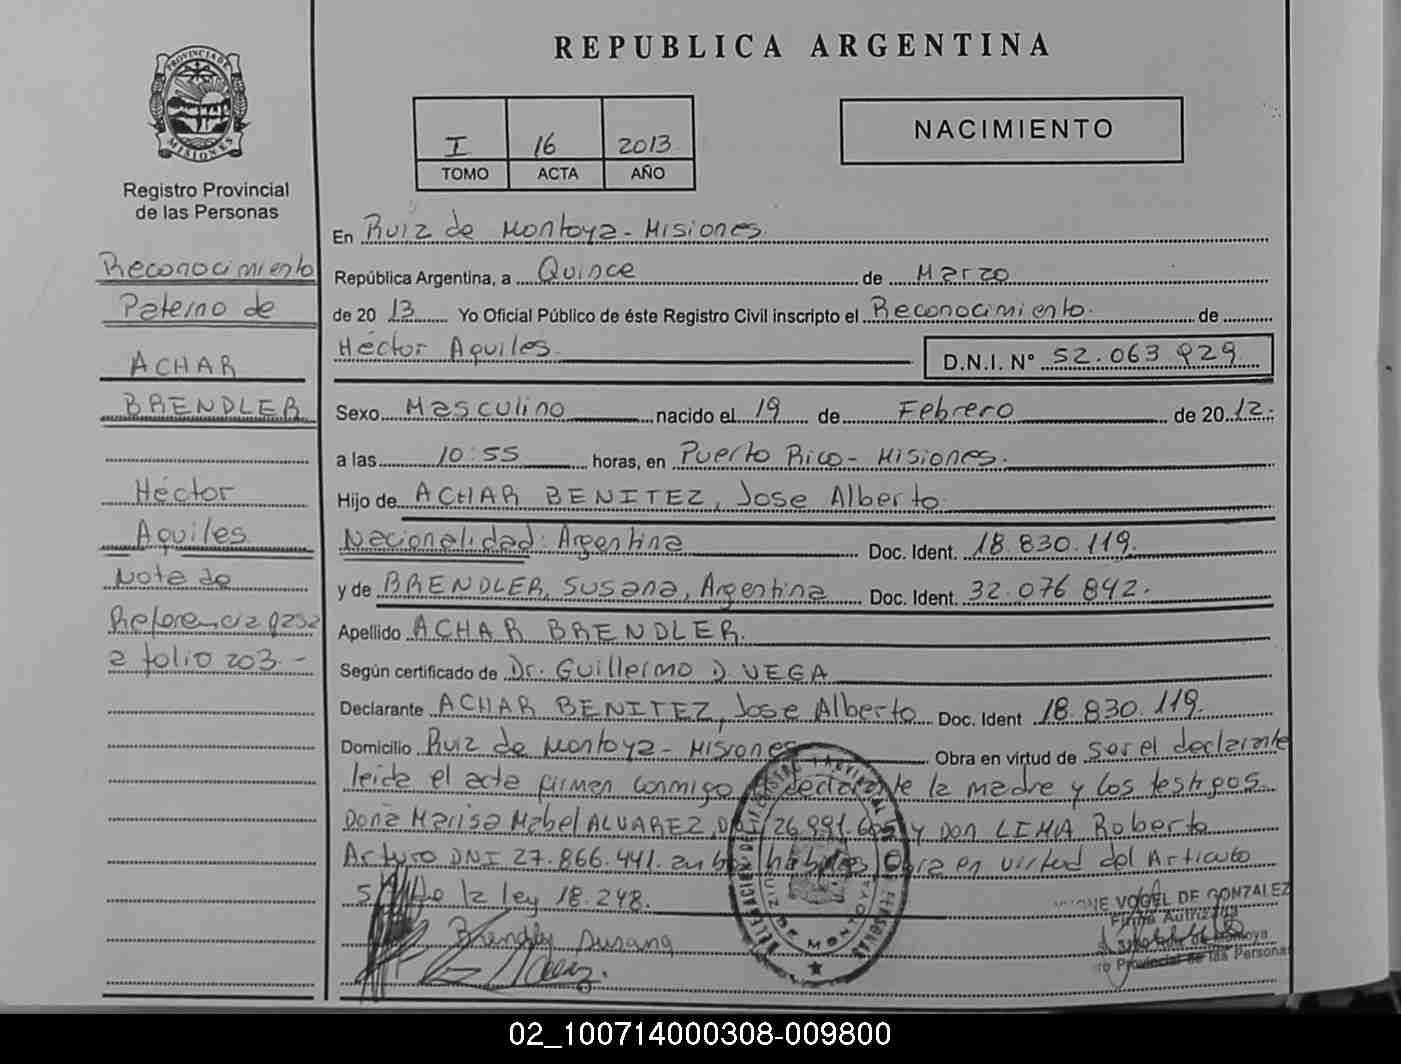 REPUBLICA ARGENTINA
PROVINCIA DE
MISIONES
Registro Provincial
de las Personas
I 16 2013
TOMO ACTA AÑO
NACIMIENTO
Reconocimiento
Paterno de
ACHAR
BRENDLER
Héctor
Aquiles
Nota de
Referencia pasa
a folio 203.-
En Ruiz de Montoya - Misiones
República Argentina, a Quince de Marzo
de 20 13 Yo Oficial Público de éste Registro Civil inscripto el Reconocimiento de
Héctor Aquiles D.N.I. N° 52.063.929
Sexo Masculino nacido el 19 de Febrero de 20 12.
a las 10:55 horas, en Puerto Rico - Misiones.
Hijo de ACHAR BENITEZ, Jose Alberto
Nacionalidad: Argentina Doc. Ident. 18.830.119.
y de BRENDLER, Susana, Argentina Doc. Ident. 32.076.842.
Apellido ACHAR BRENDLER.
Según certificado de Dr. Guillermo D. VEGA
Declarante ACHAR BENITEZ, Jose Alberto Doc. Ident 18.830.119.
Domicilio Ruiz de Montoya - Misiones Obra en virtud de ser el declarante
leida el acta firman conmigo el declarante la madre y los testigos
Doña Marisa Mabel ALVAREZ, DNI 26.991.605 y Don LIMA Roberto
Arturo DNI 27.866.441. ambos habiles, Obra en virtud del Articulo
5 de la ley 18.248.
Brendler Susana
VOGEL DE GONZALEZ
Firma Autrizada
Montoya
Provincial de las Personas
RUIZ DE MONTOYA
02_100714000308-009800